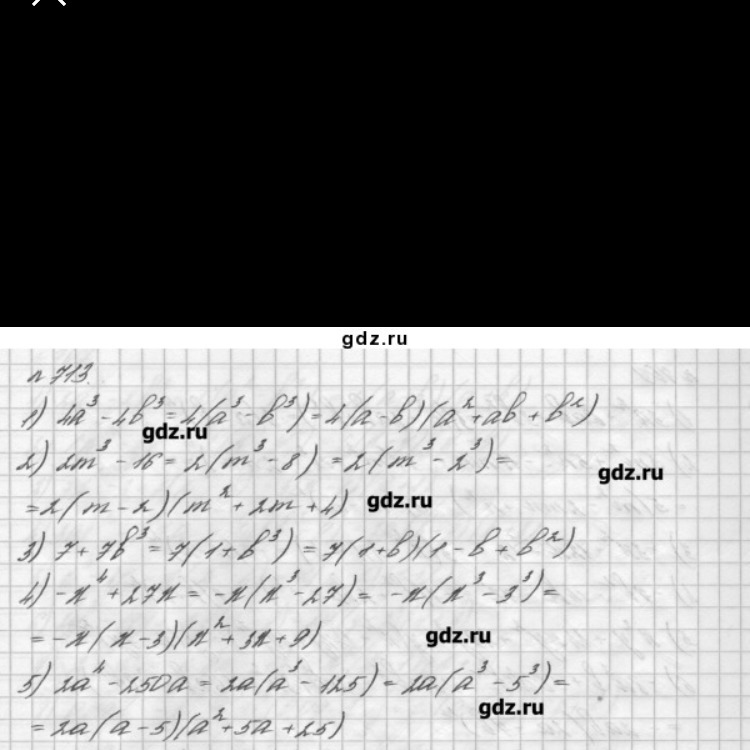 gdz.ru
n 713.
1) 4a³ - 4b³ = 4(a³ - b³) = 4(a - b)(a² + ab + b²)
gdz.ru
2) 2m³ - 16 = 2(m³ - 8) = 2(m³ - 2³) =
gdz.ru
= 2(m - 2)(m² + 2m + 4)
gdz.ru
3) 7 + 7b³ = 7(1 + b³) = 7(1 + b)(1 - b + b²)
4) -x⁴ + 27x = -x(x³ - 27) = -x(x³ - 3³) =
= -x(x - 3)(x² + 3x + 9)
gdz.ru
5) 2a⁴ - 250a = 2a(a³ - 125) = 2a(a³ - 5³) =
gdz.ru
= 2a(a - 5)(a² + 5a + 25)